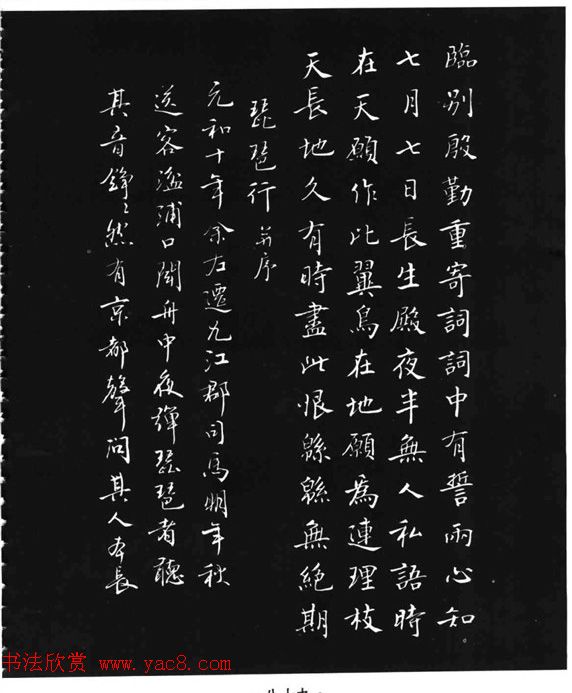 臨別殷勤重寄詞詞中有誓兩心知
七月七日長生殿夜半無人私語時
在天願作比翼鳥在地願為連理枝
天長地久有時盡此恨緜緜無絕期
琵琶行 并序
元和十年余左遷九江郡司馬明年秋
送客湓浦口聞舟中夜彈琵琶者聽
其音錚〻然有京都聲問其人本長
书法欣赏 www.yac8.com